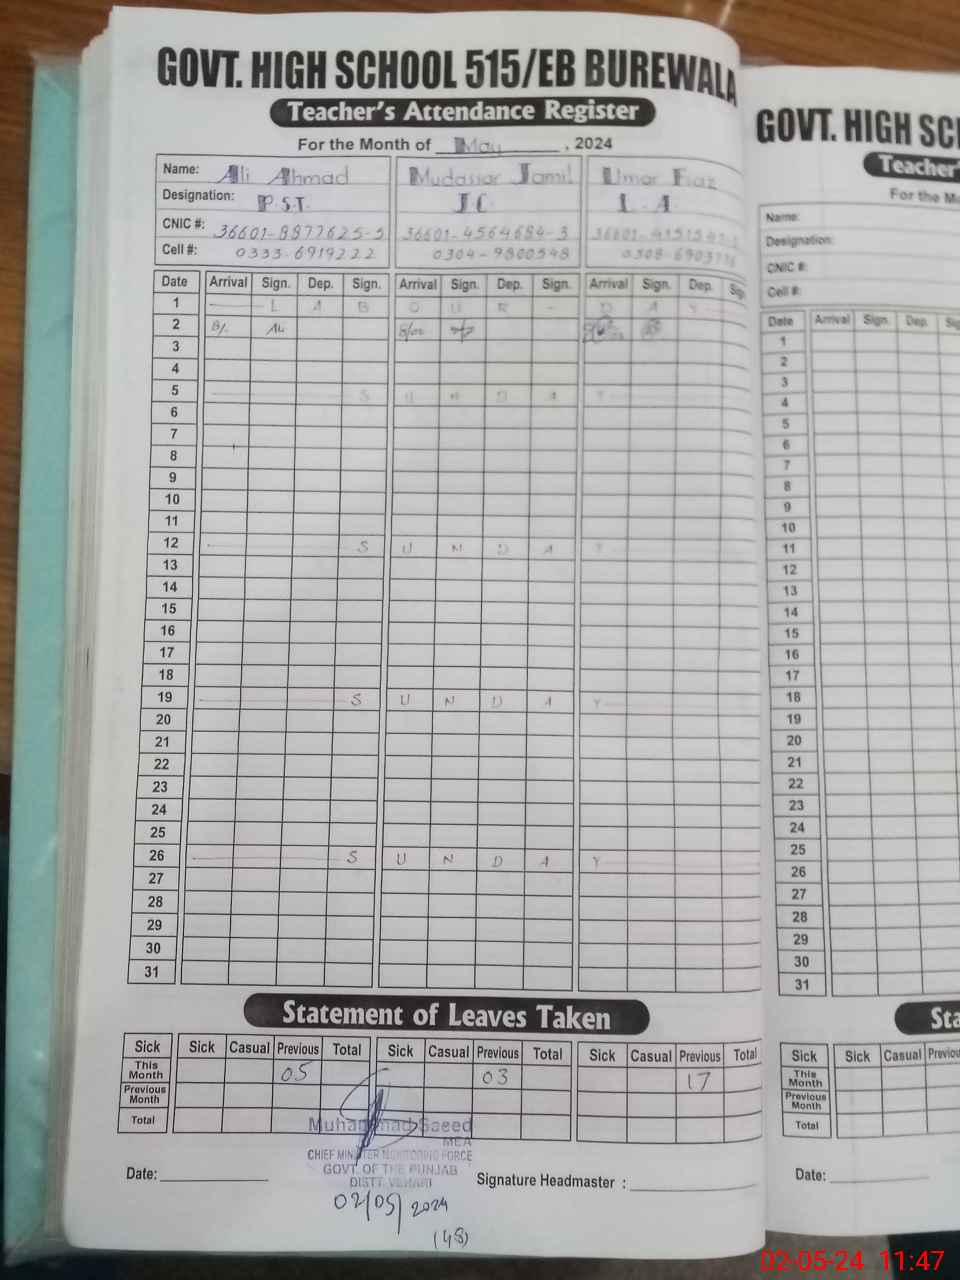 GOVT. HIGH SCHOOL 515/EB BUREWALA
Teacher's Attendance Register
For the Month of May, 2024
Name: Ali Ahmad Mudassar Jamil Umar Fiaz
Designation: P.S.T. J.C. L.A.
CNIC #: 36601-8877625-5 36601-4564684-3
Cell #: 0333-6919222 0304-9800548
Date Arrival Sign. Dep. Sign. Arrival Sign. Dep. Sign. Arrival Sign. Dep. Sig
1 L A B O U R - D A Y
2
3
4
5 S U N D A Y
6
7
8
9
10
11
12 S U N D A Y
13
14
15
16
17
18
19 S U N D A Y
20
21
22
23
24
25
26 S U N D A Y
27
28
29
30
31
Statement of Leaves Taken
Sick Sick Casual Previous Total Sick Casual Previous Total Sick Casual Previous Total
This Month 05 03 17
Previous Month
Total
Muhammad Saeed
MEA
CHIEF MINISTER MONITORING FORCE
GOVT. OF THE PUNJAB
DISTT. VEHARI
Date: Signature Headmaster :
02/05/2024
(48)
GOVT. HIGH SC
Teacher'
For the Mo
Name:
Designation:
CNIC #:
Cell #:
Date Arrival Sign. Dep. Sig
1
2
3
4
5
6
7
8
9
10
11
12
13
14
15
16
17
18
19
20
21
22
23
24
25
26
27
28
29
30
31
Sta
Sick Sick Casual Previou
This Month
Previous Month
Total
Date:
02-05-24 11:47